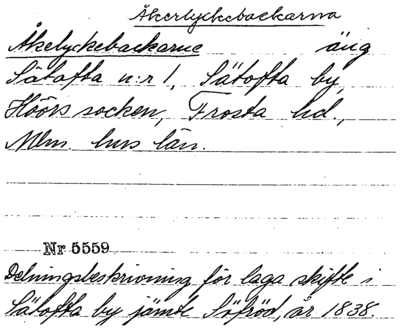 Åkerlyckebackarna
Åkelyckebackarne äng
Sätofta n:r 1, Sätofta by,
Höörs socken, Frosta hd.,
Mlm. hus län.
Nr 5559
Delningsbeskrivning för laga skifte i
Sätofta by jämte Söfröd, år 1838.